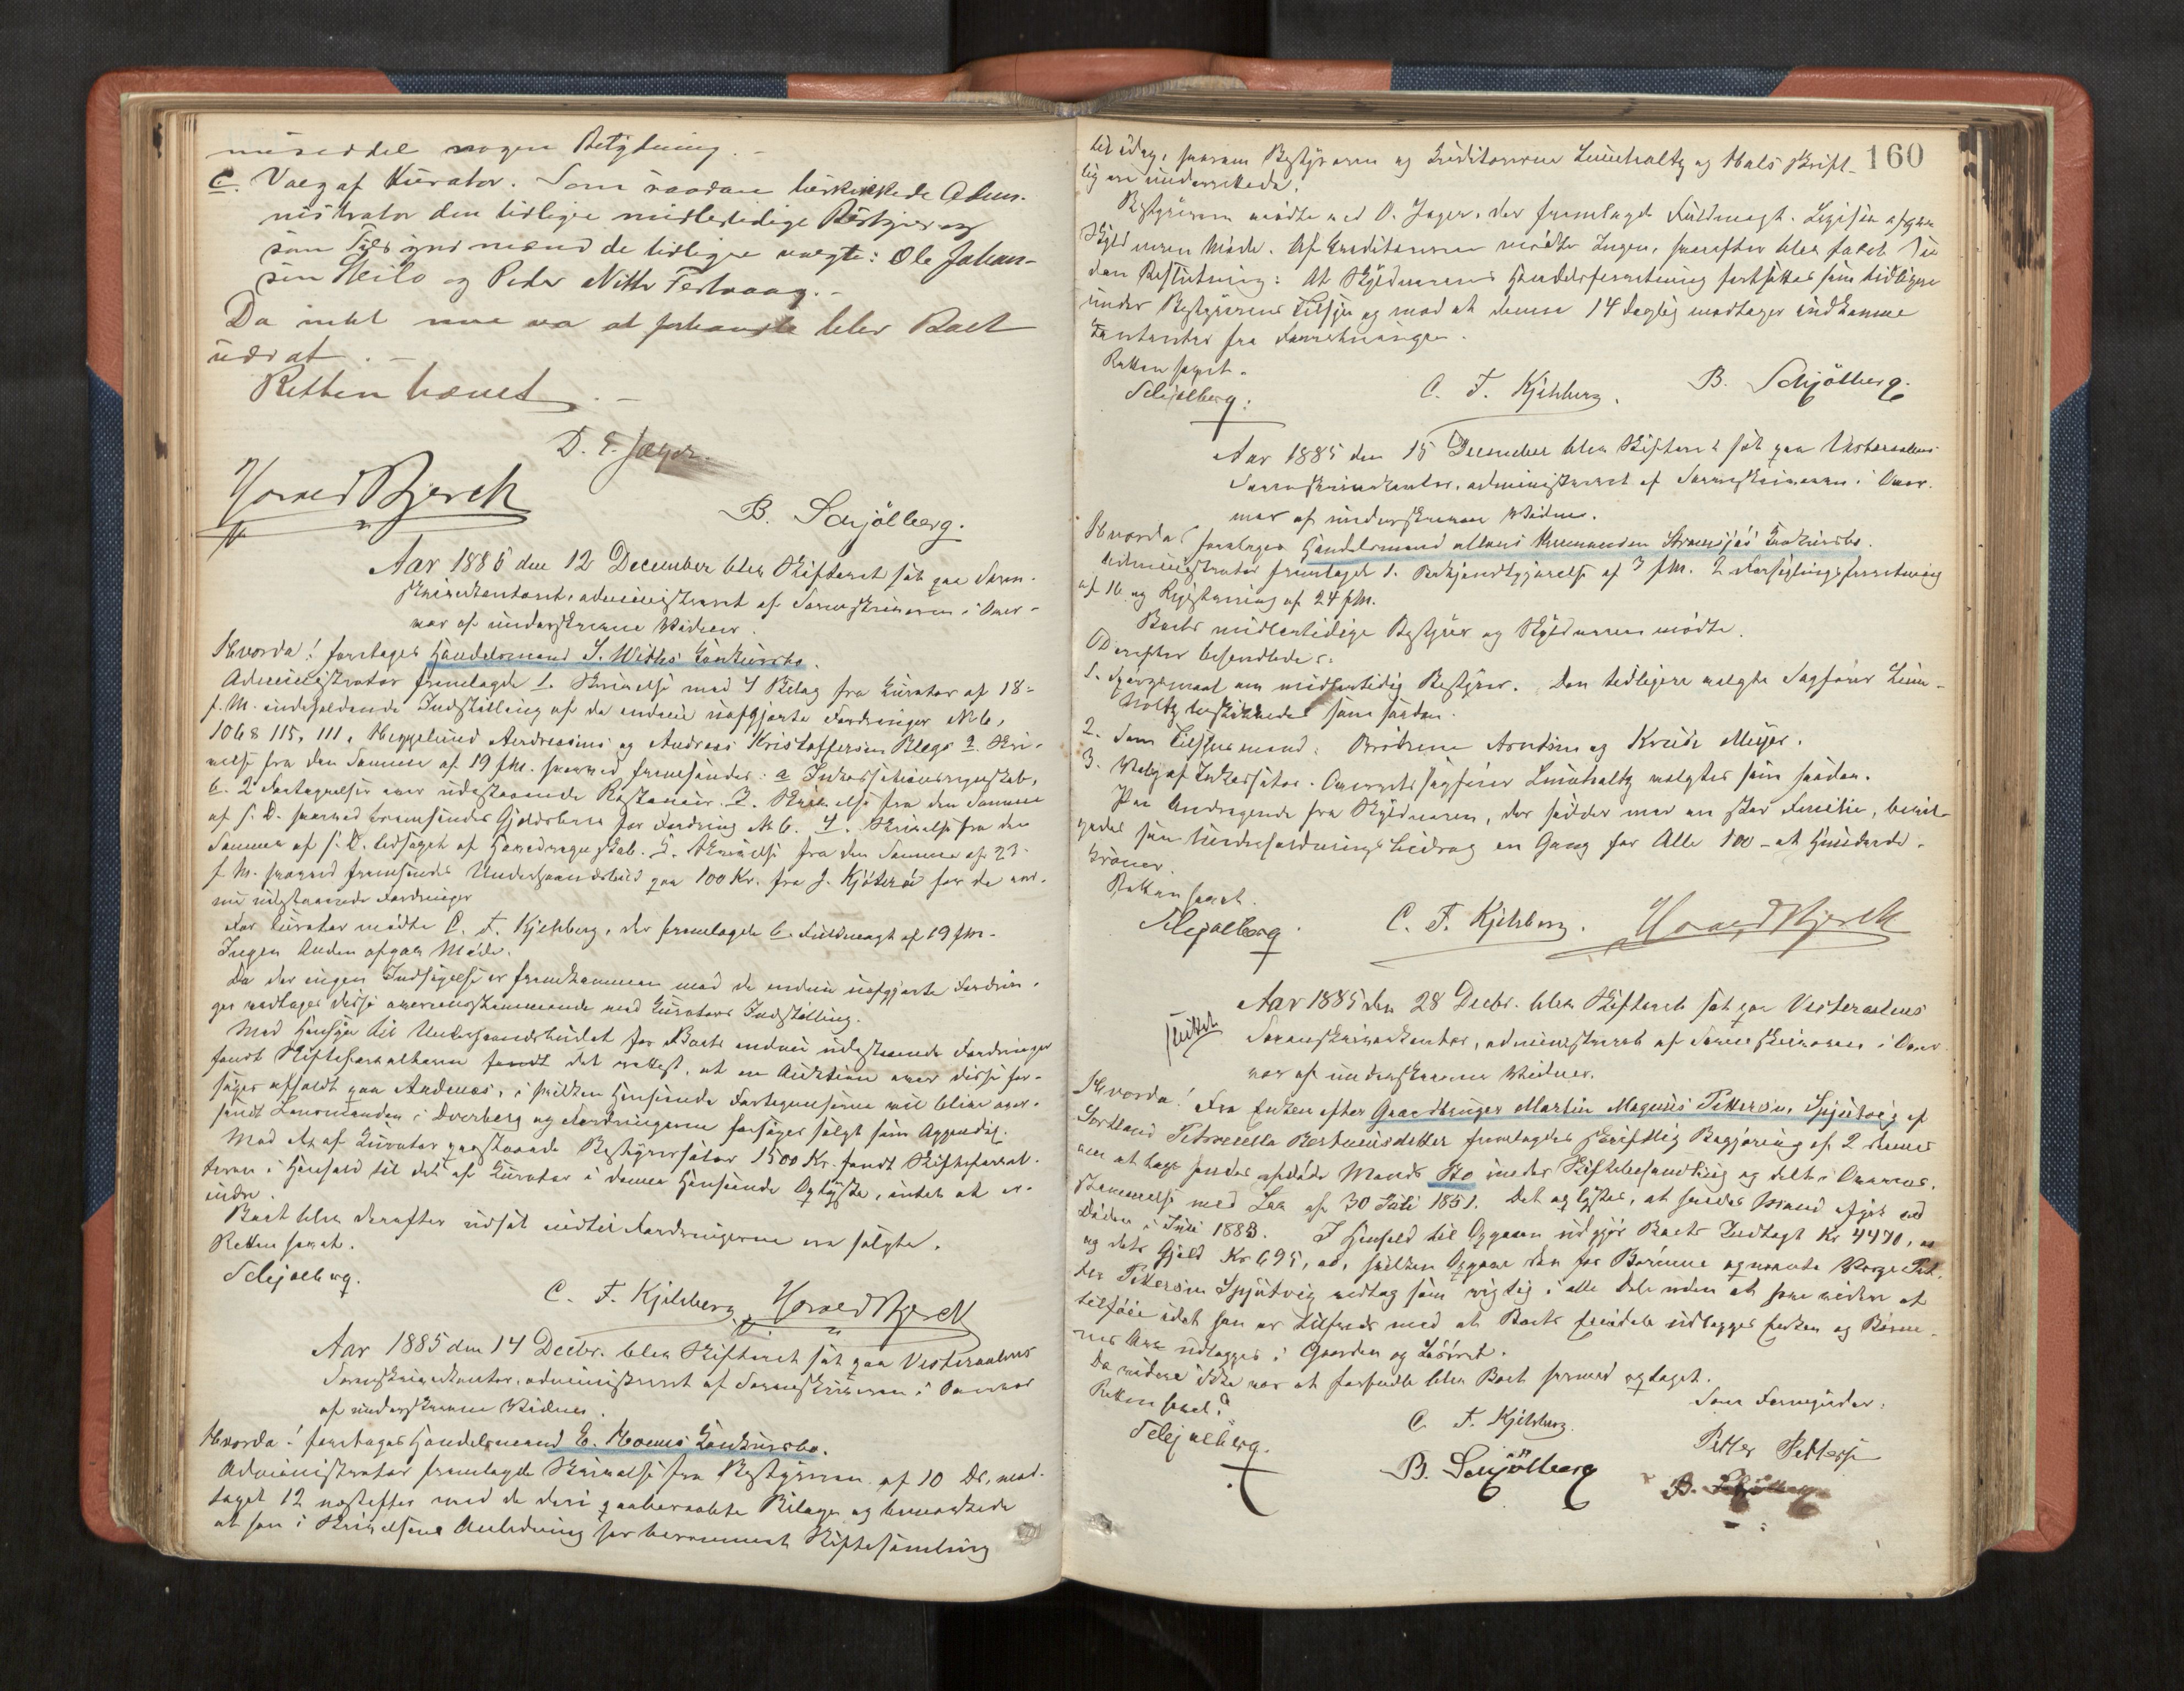 nogen Betydning. -
C. Valg af Kurator. Som saadan beskikkede Admi-
nistrator den tidligere midlertidige Bestyrer og
som Tilsynsmænd de tidligere valgte: Ole Johan-
sen Steilo og Peder Festvaag. -
Da intet mere var at forhandle blev Boet
udsat. -
Retten hævet. -
D. E. Jager.
Harald Bjerck
B. Schjölberg.
Aar 1885 den 12 December blev Skifteret sat paa Soren-
skriverkontoret, administreret af Sorenskriveren i Over-
vær af underskrevne Vidner.
Hvorda! foretages Handelsmand S. Withs Konkursbo.
Administrator fremlagde 1. Skrivelse med 4 Bilag fra Kurator af 18-
f. M. indeholdende Indstilling af de endnu uafgjorte Fordringer No 6,
1068 115, 111, Heggelund Andreasens og Andreas Kristoffersen Blegs 2. Skri-
velse fra den Samme af 19 f.M. hvorved fremsendes: a Inkassationsregnskab,
b. 2 Fortegnelser over udestaaende Restancer. 3. Skrivelse fra den Samme
af s. D. hvorved fremsendes Gjeldsbrev for Fordring No 6. 4. Skrivelse fra den
Samme af s. D. ledsaget af Hovedregnskab. 5. Skrivelse fra den Samme af 23-
f. M. hvorved fremsendes Underhaandsbud paa 100 Kr. fra J. Kjöterö for de end-
nu udestaaende Fordringer
For Kurator mödte C. F. Kjelsberg, der fremlagde 6. Fuldmagt af 19 f.M.
Ingen Anden afgav Möde.
Da der ingen Indsigelse er fremkommen mod de endnu uafgjorte Fordrin-
ger vedtages disse overensstemmende med Kurators Indstilling.
Med Hensyn til Underhaandsbudet for Boets endnu udestaaende Fordringer
fandt Skifteforvalteren fandt det rettest, at en Auktion over disse for-
söges afholdt paa Andenæs, i hvilken Henseende Fortegnelserne vil blive over-
sendt Lensmanden i Dverberg og Fordringerne forsöges solgt som Appendix.
Mod det af Kurator paastaaede Bestyrersalær 1500 Kr. fandt Skifteforval-
teren i Henhold til det af Kurator i denne Henseende Oplyste, intet at er-
indre.
Boet blev derefter udsat indtil Fordringerne er solgte.
Retten hævet.
Schjölberg.
C. F. Kjelsberg Harald Bjerck
Aar 1885 den 14 Decbr. blev Skifteret sat paa Vesteraalens
Sorenskriverkontor, administreret af Sorenskriveren i Overvær
af underskrevne Vidner.
Hvorda! foretages Handelsmand E. Moens Konkursbo.
Administrator fremlagde Skrivelse fra Bestyreren af 10 ds, mod-
taget 12 næstefter med de deri paaberaabte Bilage og bemærkede
at han i Skrivelsens Anledning har berammet Skiftesamling
160
til idag, hvorom Bestyreren og Kreditorerne Lumholtz og Hals skrift-
lig ere underrettede.
Bestyreren mödte ved O. Jager, der fremlagde Fuldmagt.
Skyldneren Möde. Af Kreditorerne mödte Ingen, hvorefter blev fattet
den Beslutning: At Skyldnerens Handelsforretning fortsættes som tidligere
under Bestyrerens Tilsyn og mod at denne 14 daglig modtager indkomne
Kontanter fra Forretningen.
Retten hævet.
Schjölberg.
C. F. Kjelsberg.
B. Schjölberg.
Aar 1885 den 15 December blev Skifteret sat paa Vesteraalens
Sorenskriverkontor, administreret af Sorenskriveren i Over-
vær af underskrevne Vidner.
Hvorda! foretages Handelsmand Konkursbo.
Administrator fremlagde 1. Bekjendtgjörelse af 7 f.M. 2 Forseglingsforretning
af 16 og Registrering af 24 f.M.
Boets midlertidige Bestyrer og Skyldneren mödte.
Derefter behandledes:
1. Spörgsmaal om midlertidig Bestyrer. Den tidligere valgte Sagförer Lum-
holtz beskikkedes som saadan.
2. Som Tilsynsmænd: Brödrene Arntsen og Meyer.
3. Valg af Inkassator. Overretssagförer Lumholtz valgtes som saadan.
Paa Andragende fra Skyldneren, der sidder med en stor Familie, bevil-
gedes som Underholdningsbidrag en Gang for Alle 100 - et Hundrede -
Kroner.
Retten hævet.
Schjölberg.
C. F. Kjelsberg. Harald Bjerck
Aar 1885 den 28 Decbr. blev Skifteret sat paa Vesteraalens
Sorenskriverkontor, administreret af Sorenskriveren i Over-
vær af underskrevne Vidner.
sluttet
Hvorda! Fra Enken efter Gaardbruger Martin Magnus Pettersen, Spjutvig af
Sortland Petronella Bertheusdatter fremlagdes skriftlig Begjæring af 2 dennes
om at tage hendes afdöde Mands Bo under Skiftebehandling og delt i Overens-
stemmelse med Lov af 30 Juli 1851. Det oplystes, at hendes Mand afgik ved
Döden i Juli 1883. I Henhold til Opgaven udgjör Boets Indtægt Kr 4470,00
og dets Gjæld Kr 695,00, hvilken Opgave den for Börnene opnævnte Værge Pet-
ter Pettersen Spjutvig vedtog som rigtig i alle Dele uden at have videre at
tilföie idet han er tilfreds med at Boets Eiendele udlægges Enken og Börne-
nes Arv udlægges i Gaarden og Lösöret.
Da videre ikke var at forhandle blev Boet hermed optaget.
Retten hævet.
Som Formynder:
Schjölberg.
C. F. Kjelsberg.
Petter Pettersen
B. Schjölberg
B. Schjölberg